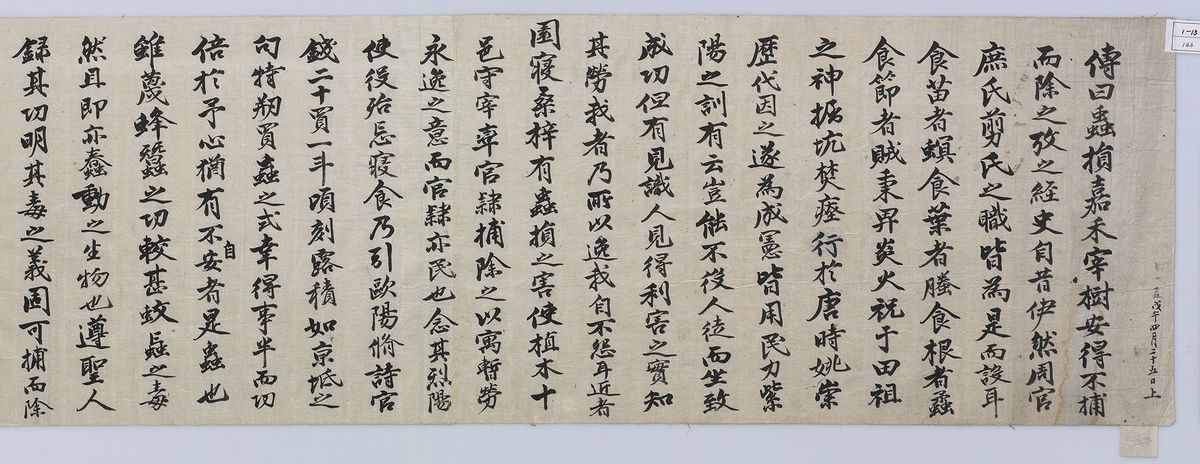 1-13
166
戊午四月二十五日上
傳曰蟲損嘉禾宰樹安得不捕
而除之攷之経史自昔伊然周官
庶氏剪氏之職皆為是而設耳
食苗者螟食葉者螣食根者蟊
食節者賊秉畀炎火祝于田祖
之神掘坑焚瘞行於唐時姚崇
歷代因之遂為成憲皆用民力紫
陽之訓有云豈能不役人徒而坐致
成功但有見識人見得利害之實知
其勞我者乃所以逸我自不怨耳近者
園寢桑梓有蟲損之害使植木十
邑守宰率官隸捕除之以寓暫勞
永逸之意而官隸亦民也念其烈陽
使役殆忘寢食乃引歐陽脩詩官
錢二十買一斗頃刻露積如京坻之
句特刱買蟲之式幸得事半而功
倍於予心猶有不自安者是蟲也
雖蔑蜂蠶之功較甚蚊蝱之毒
然且即亦蠢動之生物也遵聖人
錄其功明其毒之義固可捕而除